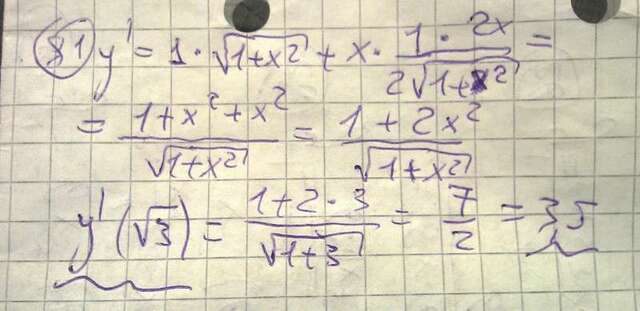 81 y' = 1 · √(1+x²) + x · (1 · 2x)/(2√(1+x²)) =
= (1+x²+x²)/√(1+x²) = (1+2x²)/√(1+x²)
y'(√3) = (1+2·3)/√(1+3) = 7/2 = 35